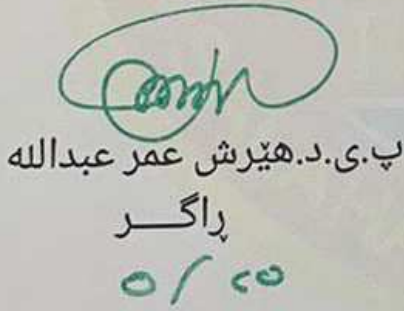 پ.ی.د.هێرش عمر عبدالله
ڕاگـــر
٥ / ٢٥